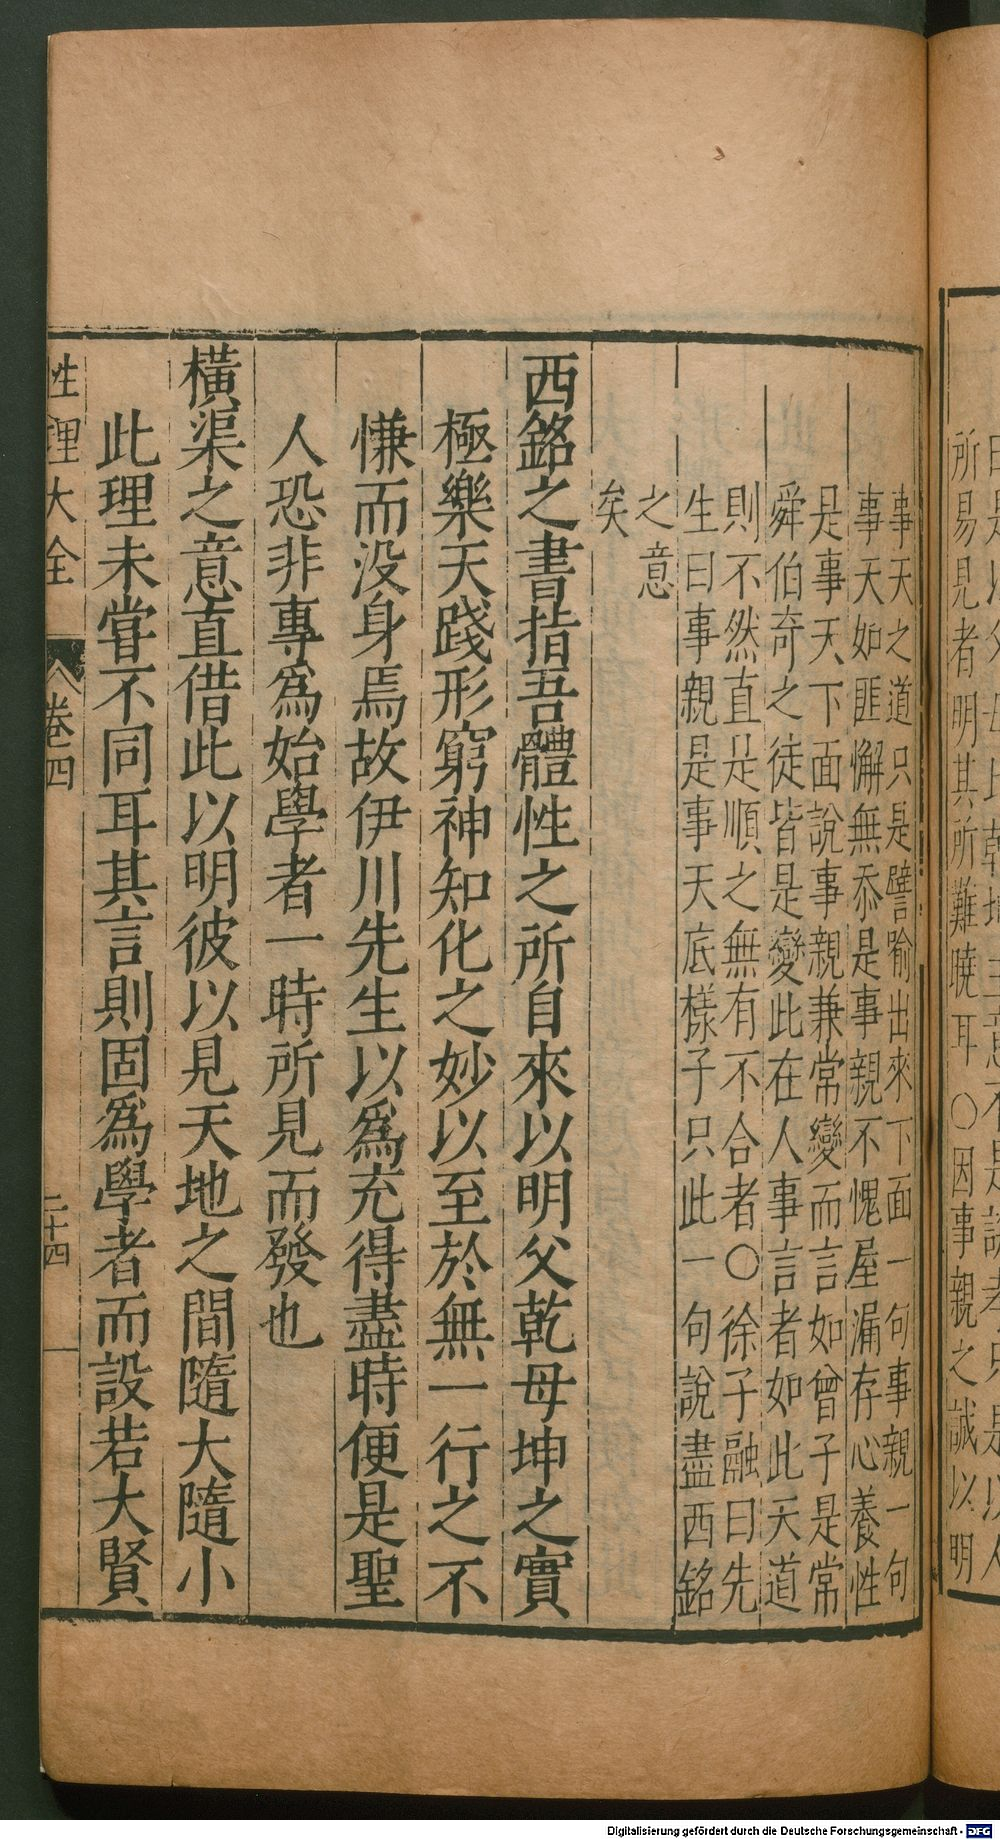 曰是以父母比乾坤主意不是說孝只是以人
所易見者明其所難曉耳○因事親之誠以明
事天之道只是譬喻出來下面一句事親一句
事天如匪懈無忝是事親不愧屋漏存心養性
是事天下面說事親兼常變而言如曾子是常
舜伯奇之徒皆是變此在人事言者如此天道
則不然直是順之無有不合者○徐子融曰先
生曰事親是事天底樣子只此一句說盡西銘
之意
矣
西銘之書指吾體性之所自來以明父乾母坤之實
極樂天踐形窮神知化之妙以至於無一行之不
慊而没身焉故伊川先生以爲充得盡時便是聖
人恐非專爲始學者一時所見而發也
橫渠之意直借此以明彼以見天地之間隨大隨小
此理未嘗不同耳其言則固爲學者而設若大賢
性理大全
卷四
二十四
Digitalisierung gefördert durch die Deutsche Forschungsgemeinschaft - DFG